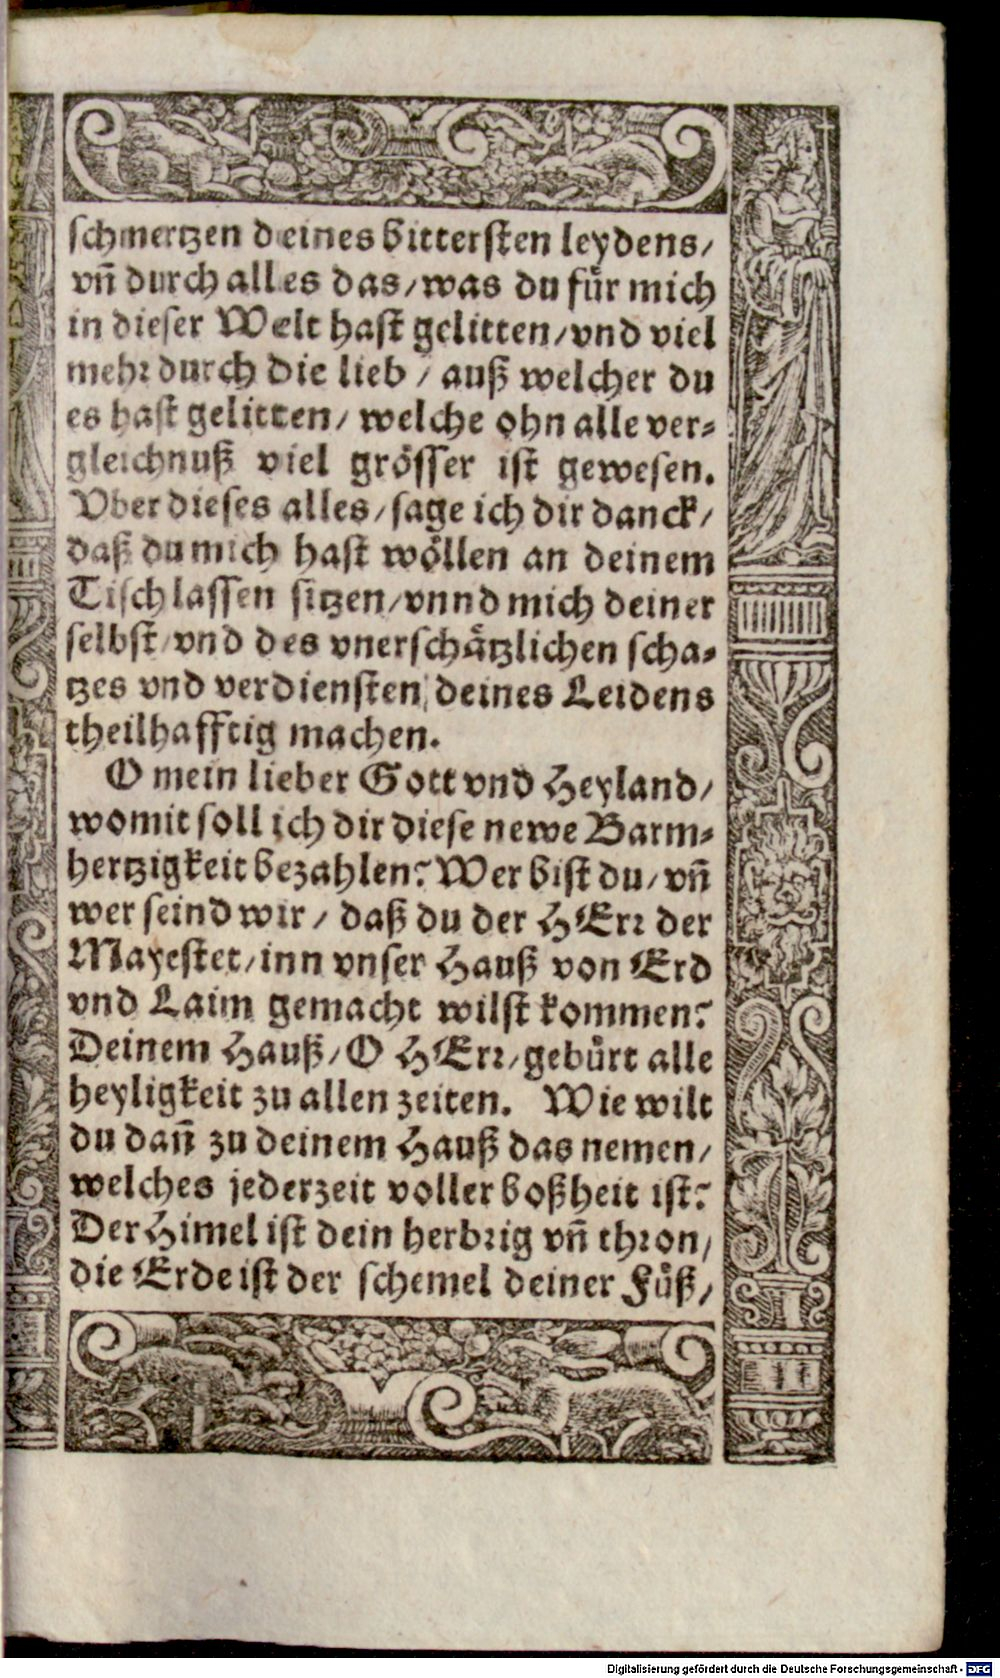 schmertzen deines bittersten leydens/
vñ durch alles das/was du fuͤr mich
in dieser Welt hast gelitten/vnd viel
mehr durch die lieb / auß welcher du
es hast gelitten/ welche ohn alle ver-
gleichnuß viel groͤsser ist gewesen.
Vber dieses alles/sage ich dir danck/
daß du mich hast woͤllen an deinem
Tisch lassen sitzen/vnnd mich deiner
selbst/vnd des vnerschaͤtzlichen scha-
tzes vnd verdiensten deines Leidens
theilhafftig machen.
O mein lieber Gott vnd Heyland/
womit soll ich dir diese newe Barm-
hertzigkeit bezahlen? Wer bist du/vñ
wer seind wir/ daß du der HErr der
Mayestet/inn vnser Hauß von Erd
vnd Laim gemacht wilst kommen?
Deinem Hauß/O HErr/gebuͤrt alle
heyligkeit zu allen zeiten. Wie wilt
du dañ zu deinem Hauß das nemen/
welches jederzeit voller boßheit ist?
Der Himel ist dein herbrig vñ thron/
die Erde ist der schemel deiner Fuͤß/
Digitalisierung gefördert durch die Deutsche Forschungsgemeinschaft - DFG